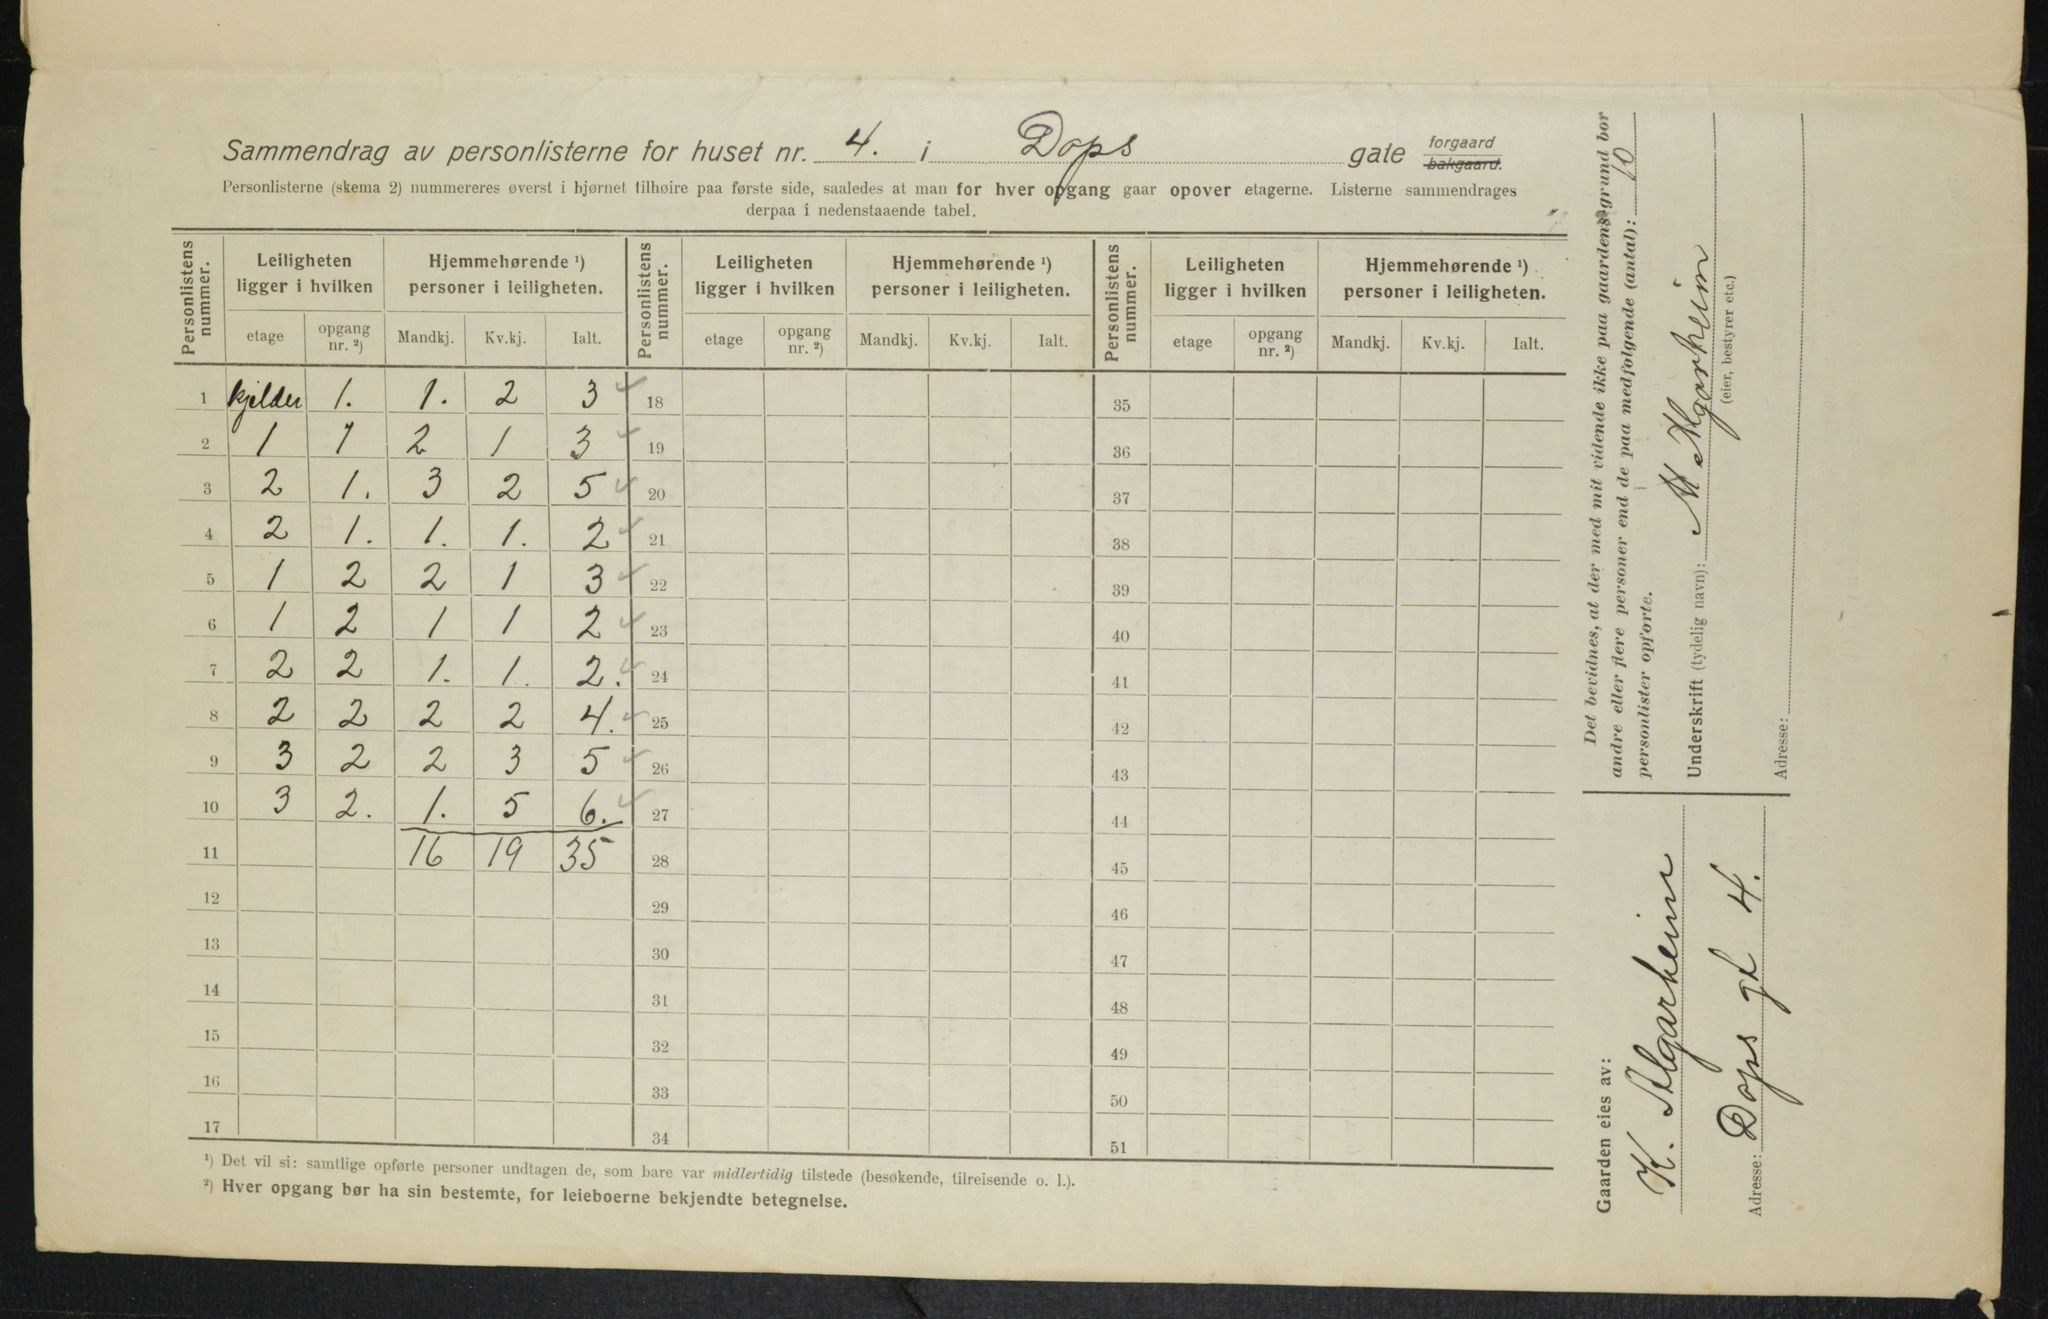 Sammendrag av personlisterne for huset nr. 4. i Dops gate forgaard bakgaard.
Personlisterne (skema 2) nummereres øverst i hjørnet tilhøire paa første side, saaledes at man for hver opgang gaar opover etagerne. Listerne sammendrages
derpaa i nedenstaaende tabel.
Personlistens nummer. Leiligheten ligger i hvilken Hjemmehørende ¹) personer i leiligheten. Personlistens nummer. Leiligheten ligger i hvilken Hjemmehørende ¹) personer i leiligheten. Personlistens nummer. Leiligheten ligger i hvilken Hjemmehørende ¹) personer i leiligheten.
etage opgang nr. ²) Mandkj. Kv.kj. Ialt. etage opgang nr. ²) Mandkj. Kv.kj. Ialt. etage opgang nr. ²) Mandkj. Kv.kj. Ialt.
1 kjelder 1. 1. 2 3 18 35
2 1 1 2 1 3 19 36
3 2 1. 3 2 5 20 37
4 2 1. 1. 1. 2 21 38
5 1 2 2 1 3 22 39
6 1 2 1 1 2 23 40
7 2 2 1. 1. 2. 24 41
8 2 2 2 2 4. 25 42
9 3 2 2 3 5 26 43
10 3 2. 1. 5 6. 27 44
11 16 19 35 28 45
12 29 46
13 30 47
14 31 48
15 32 49
16 33 50
17 34 51
¹) Det vil si: samtlige opførte personer undtagen de, som bare var midlertidig tilstede (besøkende, tilreisende o. l.).
²) Hver opgang bør ha sin bestemte, for leieboerne bekjendte betegnelse.
Det bevidnes, at der med mit vidende ikke paa gaardens grund bor
andre eller flere personer end de paa medfølgende (antal): 10
personlister opførte.
Underskrift (tydelig navn): Algarheim
(eier, bestyrer etc.)
Adresse:
Gaarden eies av:
K. Algarheim
Adresse: Dops gt 4.